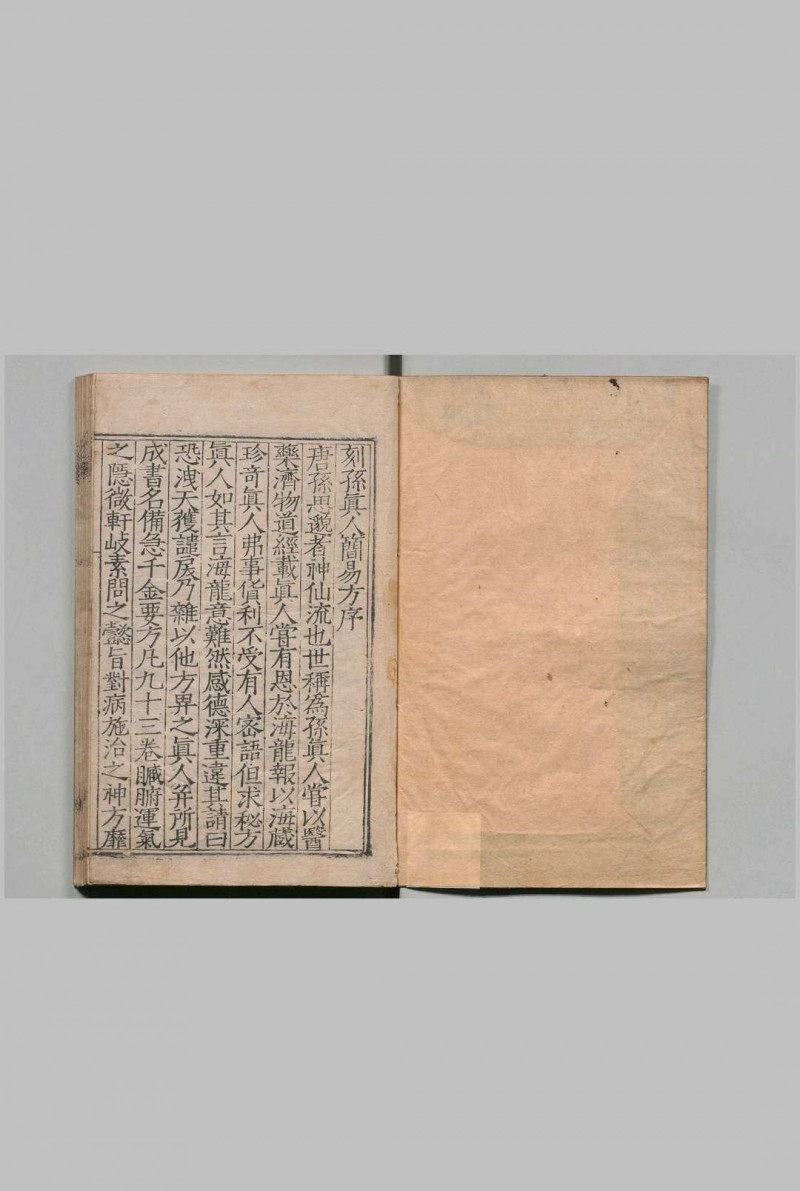 刻孫眞人簡易方序
唐孫思邈者神仙流也世稱爲孫眞人嘗以醫
藥濟物道經載眞人嘗有恩於海龍報以海藏
珍奇眞人弗事貨利不受有人密語但求秘方
眞人如其言海龍意難然感德深重違其請曰
恐洩天獲譴戾乃雜以他方畀之眞人并所見
成書名備急千金要方凡九十三卷臟腑運氣
之隱微軒岐素問之懿旨對病施治之神方靡